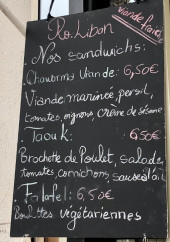 Ro. Liban
Viande fraîche
Nos sandwichs:
Chawarma Viande: 6,50€
Viande marinée, persil,
tomates, oignons, crème de sésame
Taouk: 6,50€
Brochette de Poulet, salade,
tomates, cornichons, sauce à l'ail
Falafel: 6,50€
Boulettes végétariennes